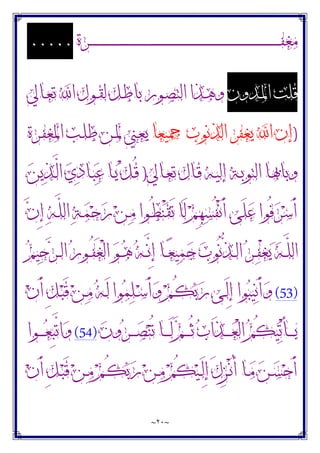 مغفرة .....
قلت المدون وهذا التصور باطل لقول الله تعالي
(إن الله يغفر الذنوب جميعا يعني لمن طلب المغفرة
وبابها التوبة إليه قال تعالي( قُلْ يَا عِبَادِيَ الَّذِينَ
أَسْرَفُوا عَلَى أَنْفُسِهِمْ لَا تَقْنَطُوا مِنْ رَحْمَةِ اللَّهِ إِنَّ
اللَّهَ يَغْفِرُ الذُّنُوبَ جَمِيعًا إِنَّهُ هُوَ الْغَفُورُ الرَّحِيمُ
(53) وَأَنِيبُوا إِلَى رَبِّكُمْ وَأَسْلِمُوا لَهُ مِنْ قَبْلِ أَنْ
يَأْتِيَكُمُ الْعَذَابُ ثُمَّ لَا تُنْصَرُونَ (54) وَاتَّبِعُوا
أَحْسَنَ مَا أُنْزِلَ إِلَيْكُمْ مِنْ رَبِّكُمْ مِنْ قَبْلِ أَنْ
~٢٠~